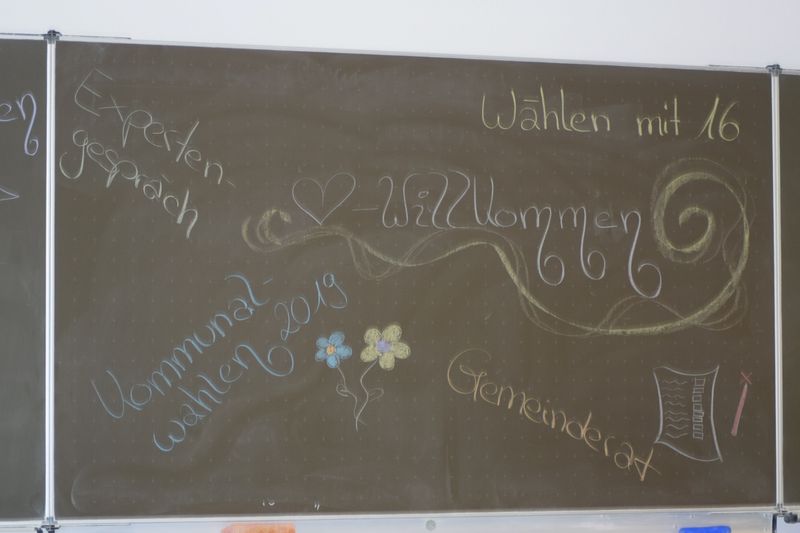 Experten-
gespräch
Wählen mit 16
-Willkommen
Kommunal-
wahlen 2019
Gemeinderat
en